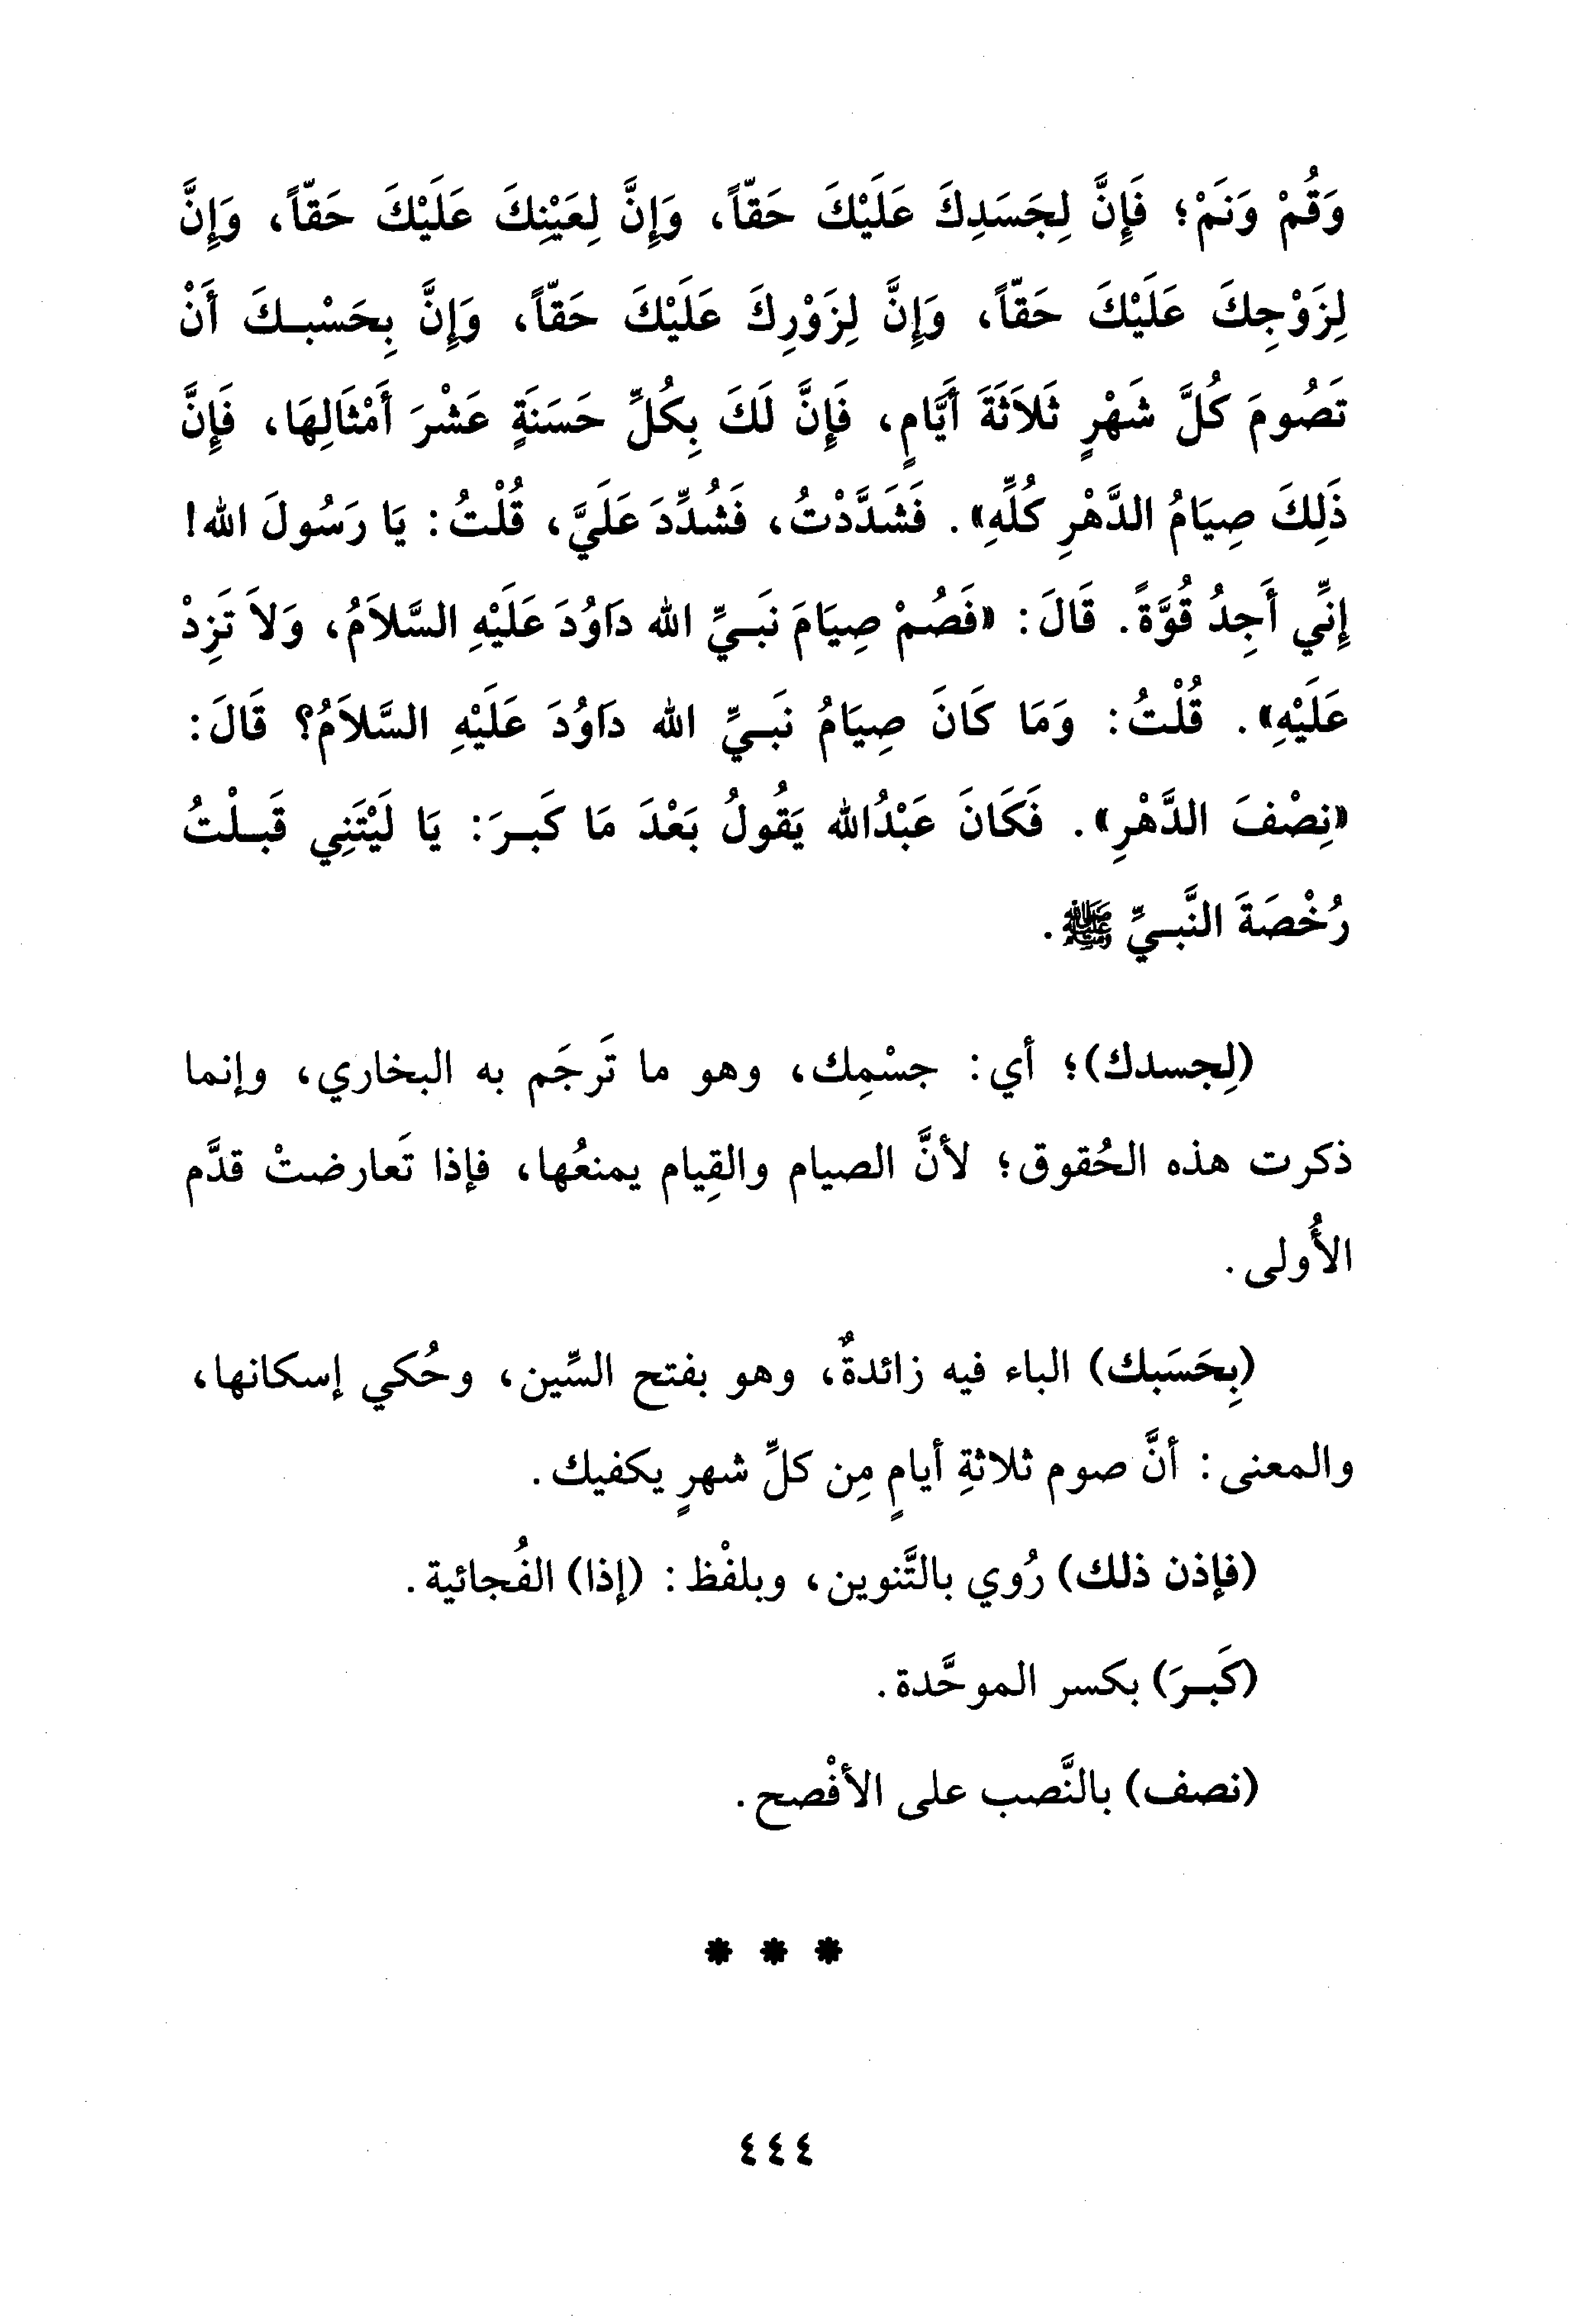 وَقُمْ وَنَمْ؛ فَإِنَّ لِجَسَدِكَ عَلَيْكَ حَقّاً، وَإِنَّ لِعَيْنِكَ عَلَيْكَ حَقّاً، وَإِنَّ
لِزَوْجِكَ عَلَيْكَ حَقّاً، وَإِنَّ لِزَوْرِكَ عَلَيْكَ حَقّاً، وَإِنَّ بِحَسْبِكَ أَنْ
تَصُومَ كُلَّ شَهْرٍ ثَلاَثَةَ أَيَّامٍ، فَإِنَّ لَكَ بِكُلِّ حَسَنَةٍ عَشْرَ أَمْثَالِهَا، فَإِنَّ
ذَلِكَ صِيَامُ الدَّهْرِ كُلِّهِ». فَشَدَّدْتُ، فَشُدِّدَ عَلَيَّ، قُلْتُ: يَا رَسُولَ الله!
إِنِّي أَجِدُ قُوَّةً. قَالَ: «فَصُمْ صِيَامَ نَبِيِّ الله دَاوُدَ عَلَيْهِ السَّلاَمُ، وَلاَ تَزِدْ
عَلَيْهِ». قُلْتُ: وَمَا كَانَ صِيَامُ نَبِيِّ الله دَاوُدَ عَلَيْهِ السَّلاَمُ؟ قَالَ:
«نِصْفَ الدَّهْرِ». فَكَانَ عَبْدُالله يَقُولُ بَعْدَ مَا كَبِرَ: يَا لَيْتَنِي قَبِلْتُ
رُخْصَةَ النَّبِيِّ ﷺ.
(لِجسدك)؛ أي: جسْمِك، وهو ما تَرجَم به البخاري، وإنما
ذكرت هذه الحُقوق؛ لأنَّ الصيام والقِيام يمنعُها، فإذا تَعارضتْ قدَّم
الأُولى.
(بِحَسَبك) الباء فيه زائدةٌ، وهو بفتح السِّين، وحُكي إسكانها،
والمعنى: أنَّ صوم ثلاثةِ أيامٍ مِن كلِّ شهرٍ يكفيك.
(فإذن ذلك) رُوي بالتَّنوين، وبلفْظ: (إذا) الفُجائية.
(كَبِرَ) بكسر الموحَّدة.
(نصف) بالنَّصب على الأفْصح.
* * *
٤٤٤